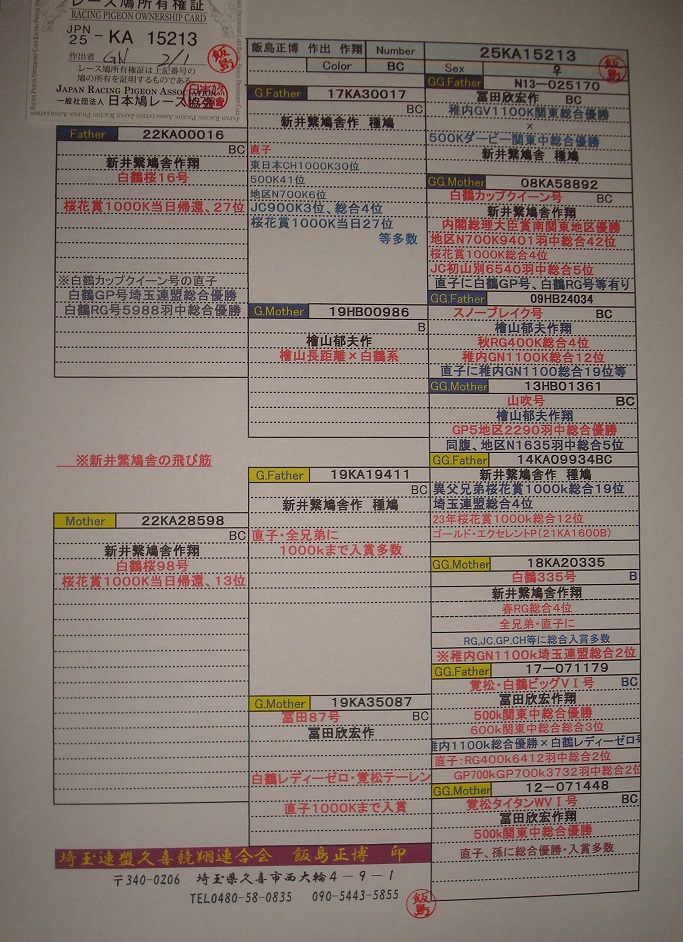 レース鳩所有権証
RACING PIGEON OWNERSHIP CARD
JPN
25 - KA 15213
作出者 GN 2/1
レース鳩所有権証は上記番号の
鳩の所有を証明するものである
JAPAN RACING PIGEON ASSOCIATION
一般社団法人 日本鳩レース協会
飯島
飯島正博 作出 作翔 Number 25KA15213
Color BC Sex ♀
飯島
Father 22KA00016
BC
新井繋鳩舎作翔
白鶴桜16号
桜花賞1000K当日帰還、27位
※白鶴カップクイーン号の直子
白鶴GP号埼玉連盟総合優勝
白鶴RG号5988羽中総合優勝
※新井繋鳩舎の飛び筋
Mother 22KA28598
BC
新井繋鳩舎作翔
白鶴桜98号
桜花賞1000K当日帰還、13位
G.Father 17KA30017
BC
新井繋鳩舎作 種鳩
直子
東日本CH1000K30位
500K41位
地区N700K6位
JC900K3位、総合4位
桜花賞1000K当日27位
等多数
G.Mother 19HB00986
B
檜山郁夫作
檜山長距離×白鶴系
G.Father 19KA19411
BC
新井繋鳩舎作 種鳩
直子・全兄弟に
1000kまで入賞多数
G.Mother 19KA35087
冨田87号 BC
冨田欣宏作
白鶴レディーゼロ・覚松テーレン
直子1000Kまで入賞
GG.Father N13-025170
冨田欣宏作 BC
稚内GV1100K関東総合優勝
×
500Kダービー関東中総合優勝
新井繋鳩舎 種鳩
GG.Mother 08KA58892
白鶴カップクイーン号 BC
新井繋鳩舎作翔
内閣総理大臣賞南関東地区優勝
地区N700K9401羽中総合42位
桜花賞1000K総合4位
JC初山別6540羽中総合5位
直子に白鶴GP号、白鶴RG号等有り
GG.Father 09HB24034
スノーブレイク号 BC
檜山郁夫作翔
秋RG400K総合4位
稚内GN1100K総合12位
直子に稚内GN1100総合19位等
GG.Mother 13HB01361
山吹号 BC
檜山郁夫作翔
GP5地区2290羽中総合優勝
同腹、地区N1635羽中総合5位
GG.Father 14KA09934BC
新井繋鳩舎作 種鳩
異父兄弟桜花賞1000k総合19位
埼玉連盟総合4位
23年桜花賞1000k総合12位
ゴールド・エクセレントP(21KA1600B)
GG.Mother 18KA20335
白鶴335号 B
新井繋鳩舎作翔
春RG総合4位
全兄弟・直子に
RG,JC,GP,CH等に総合入賞多数
※稚内GN1100k埼玉連盟総合2位
GG.Father 17-071179
覚松・白鶴ビッグVⅠ号 BC
冨田欣宏作翔
500k関東中総合優勝
600k関東中総合総合3位
稚内1100k総合優勝×白鶴レディーゼロ号
直子：RG400k6412羽中総合2位
GP700kGP700k3732羽中総合2位
GG.Mother 12-071448
覚松タイタンWVⅠ号 BC
冨田欣宏作翔
500k関東中総合優勝
直子、孫に総合優勝・入賞多数
埼玉連盟久喜競翔連合会 飯島正博 印
〒340-0206 埼玉県久喜市西大輪4-9-1
TEL0480-58-0835 090-5443-5855
飯島